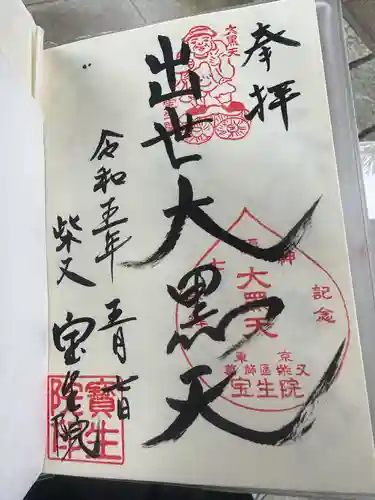 奉拝
大黒天
出世大黒天
記念
大黒天
東京
葛飾區柴又
宝生院
令和五年
五月七日
柴又
宝生院
寶生
院印